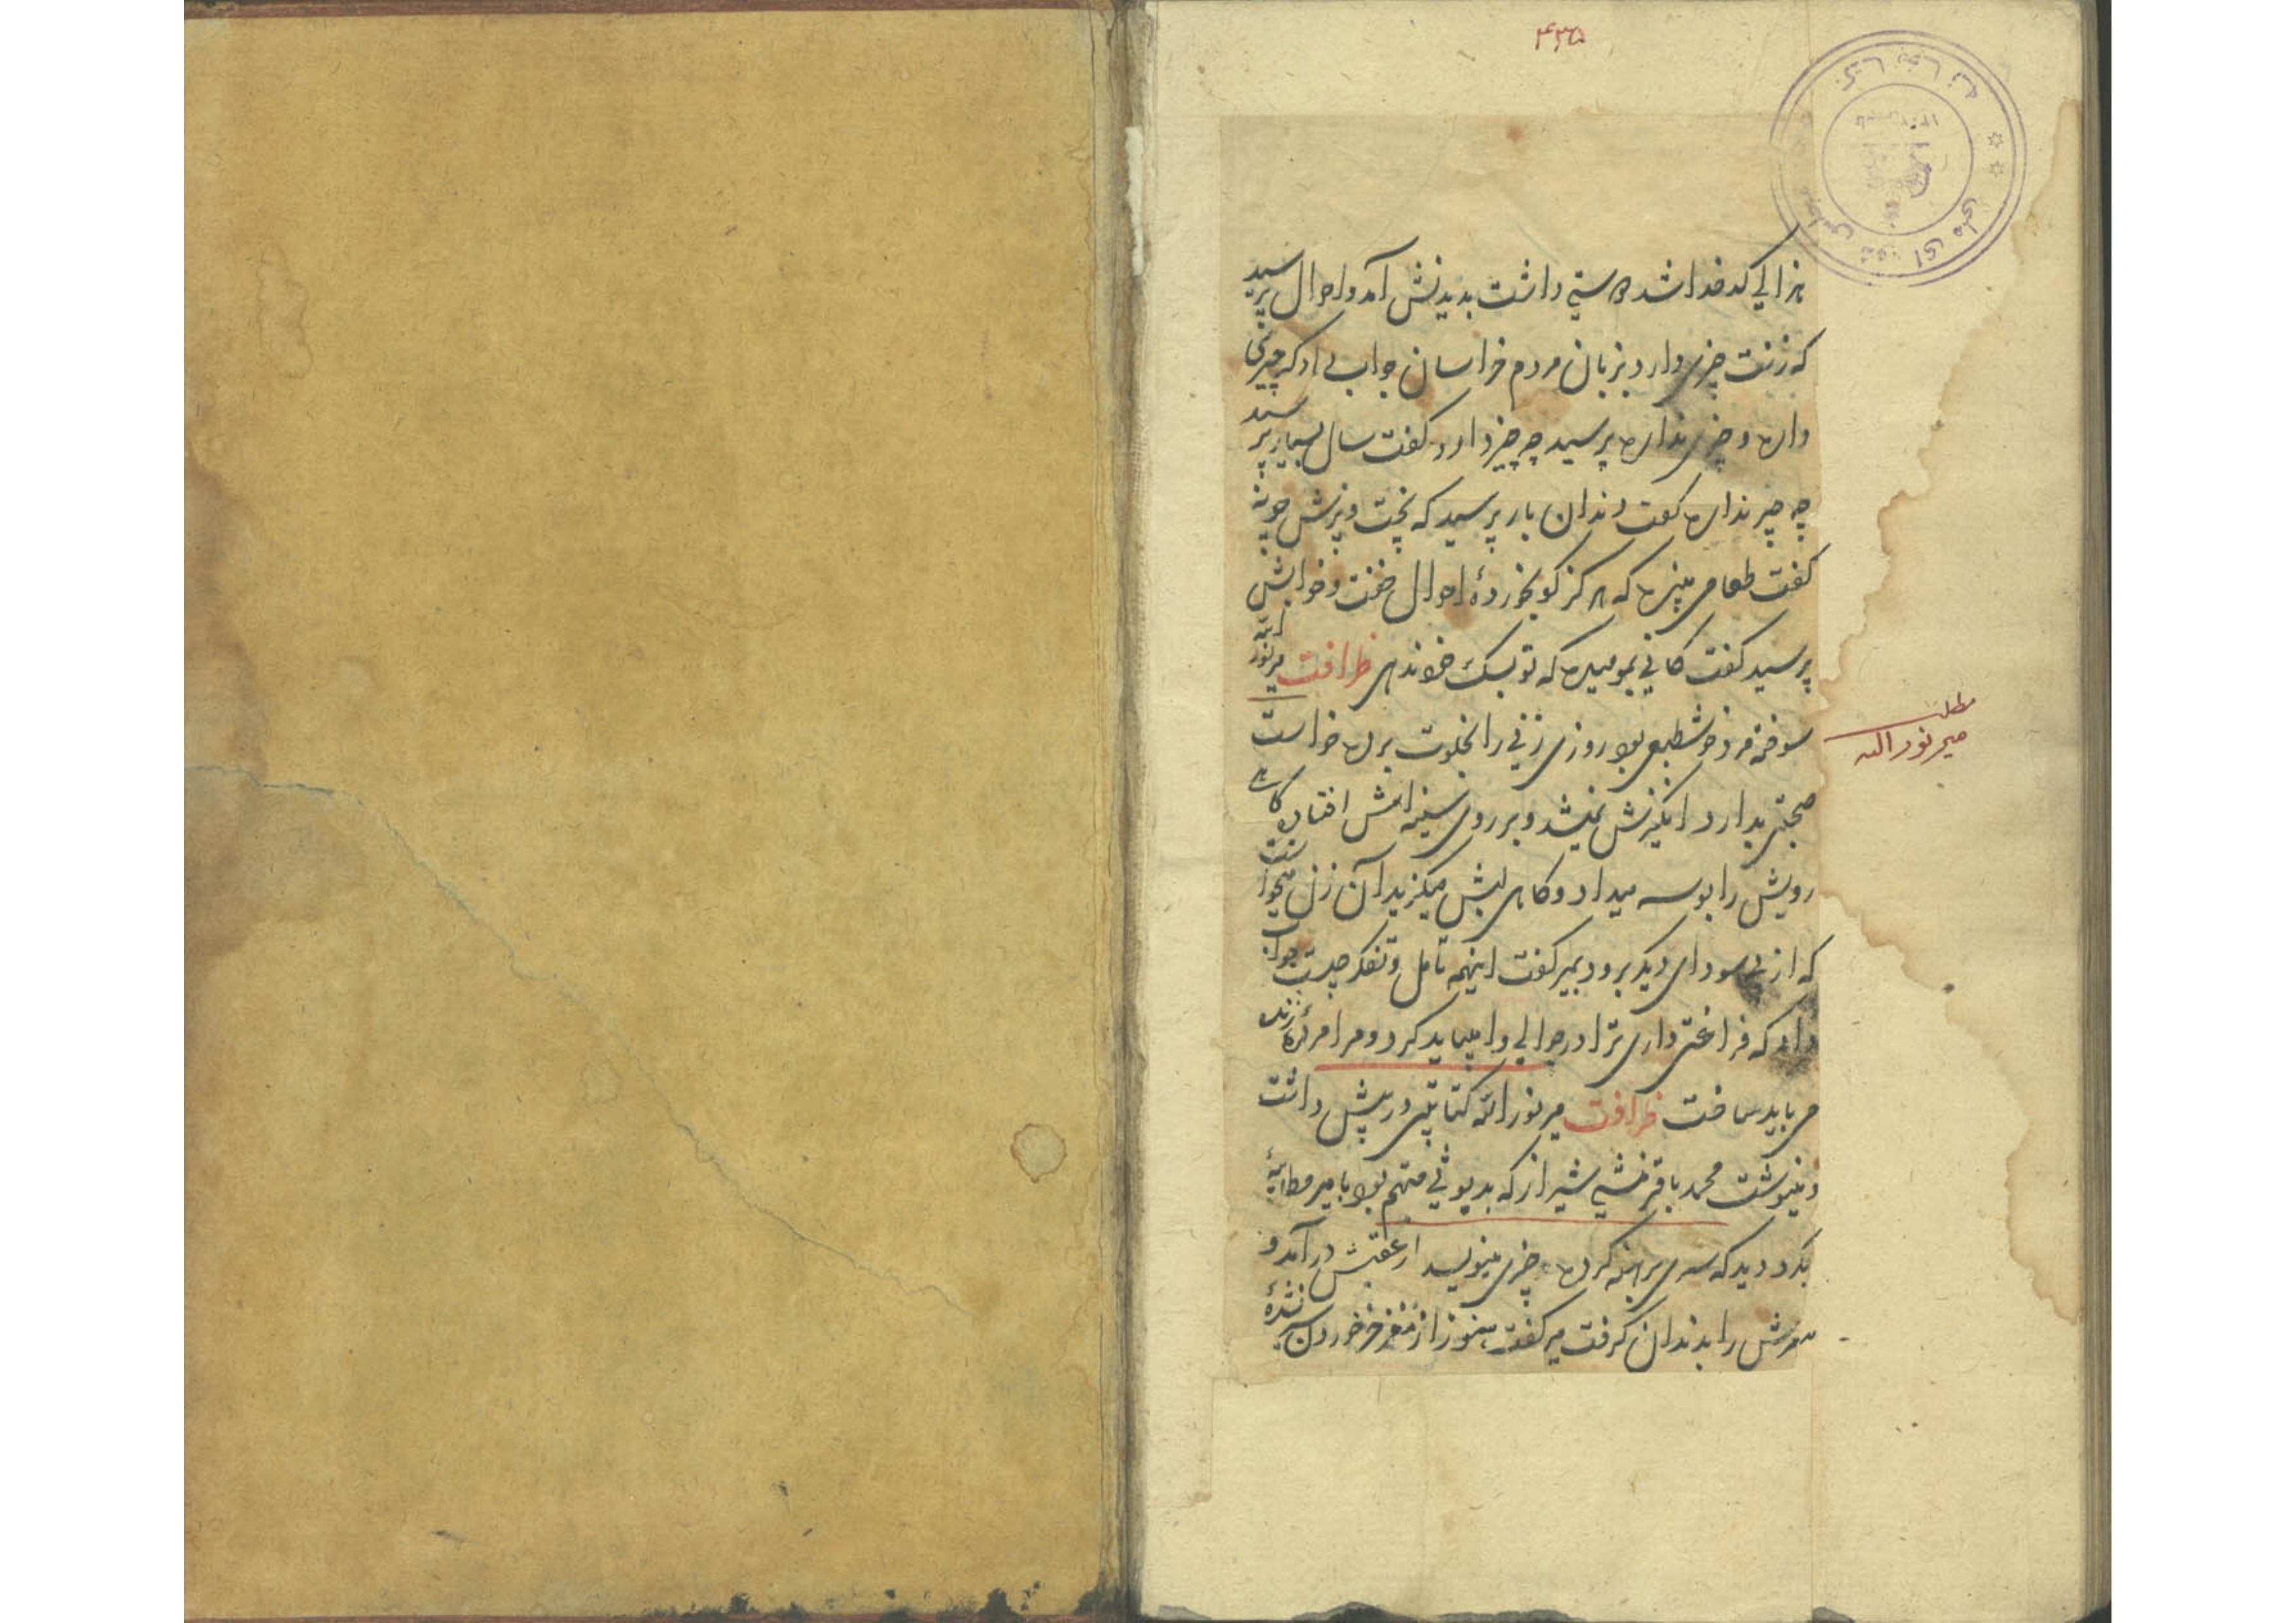 ۴۳۵
هزالی کدخدا شد دوستی داشت بدیدنش آمد و احوال پرسید
که زنت چیزی دارد بزبان مردم خراسان جواب داد که چیزی
داره و چیزی نداره پرسید چه چیز دارد گفت سال بسیار پرسید
چه چیز نداره گفت دندان باز پرسید که پخت و پزش چونه
گفت طعامی میپزه که هرگز گو نخوردهٔ احوال خفت و خوابش
پرسید گفت کانی بمو میده که تو بسک خود ندهی ظرافت میر نورالله
سوخته مرد خوشطبعی بود روزی زنی را بخلوت برده خواست
صحبتی بدارد انگیزش نمیشد و بر روی سینه اش افتاده گاهی
رویش را بوسه میداد و گاهی لبش میگزید آن زن میخواست
که از پی سودای دیگر برود بمیر گفت اینهمه تامل و تفکر چیست جواب
داد که فراغتی داری ترا در جوالی وا میباید کرد و مرا مردهٔ زنده
می باید ساخت ظرافت میر نورالله کتابتی در پیش داشت
و مینوشت محمد باقر منشی شیراز که بدیوثی متهم بود با میر مطایبهٔ
بکرد دید که سری برهنه کرده چیزی مینویسد از عقبش درآمد و
سرش را بدندان گرفت میر گفت هنوز از مغز خر خوردن سیر نشدهٔ
مطلب
میر نورالله